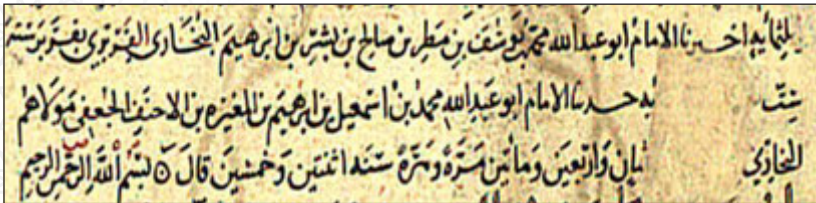 ثلثمايه اخبرنا الامام ابو عبد الله محمد بن يوسف بن مطر بن صالح بن بشر بن ابرهيم البخاري الفربري بفربر سنة
ست يه حدثنا الامام ابو عبد الله محمد بن اسمعيل بن ابرهيم بن المغيره بن الاحنف الجعفي مولاهم
البخاري ثمان واربعين ومأتين مرة ومرة سنه اثنتين وخمسين قال ه بسم الله الرحمن الرحيم